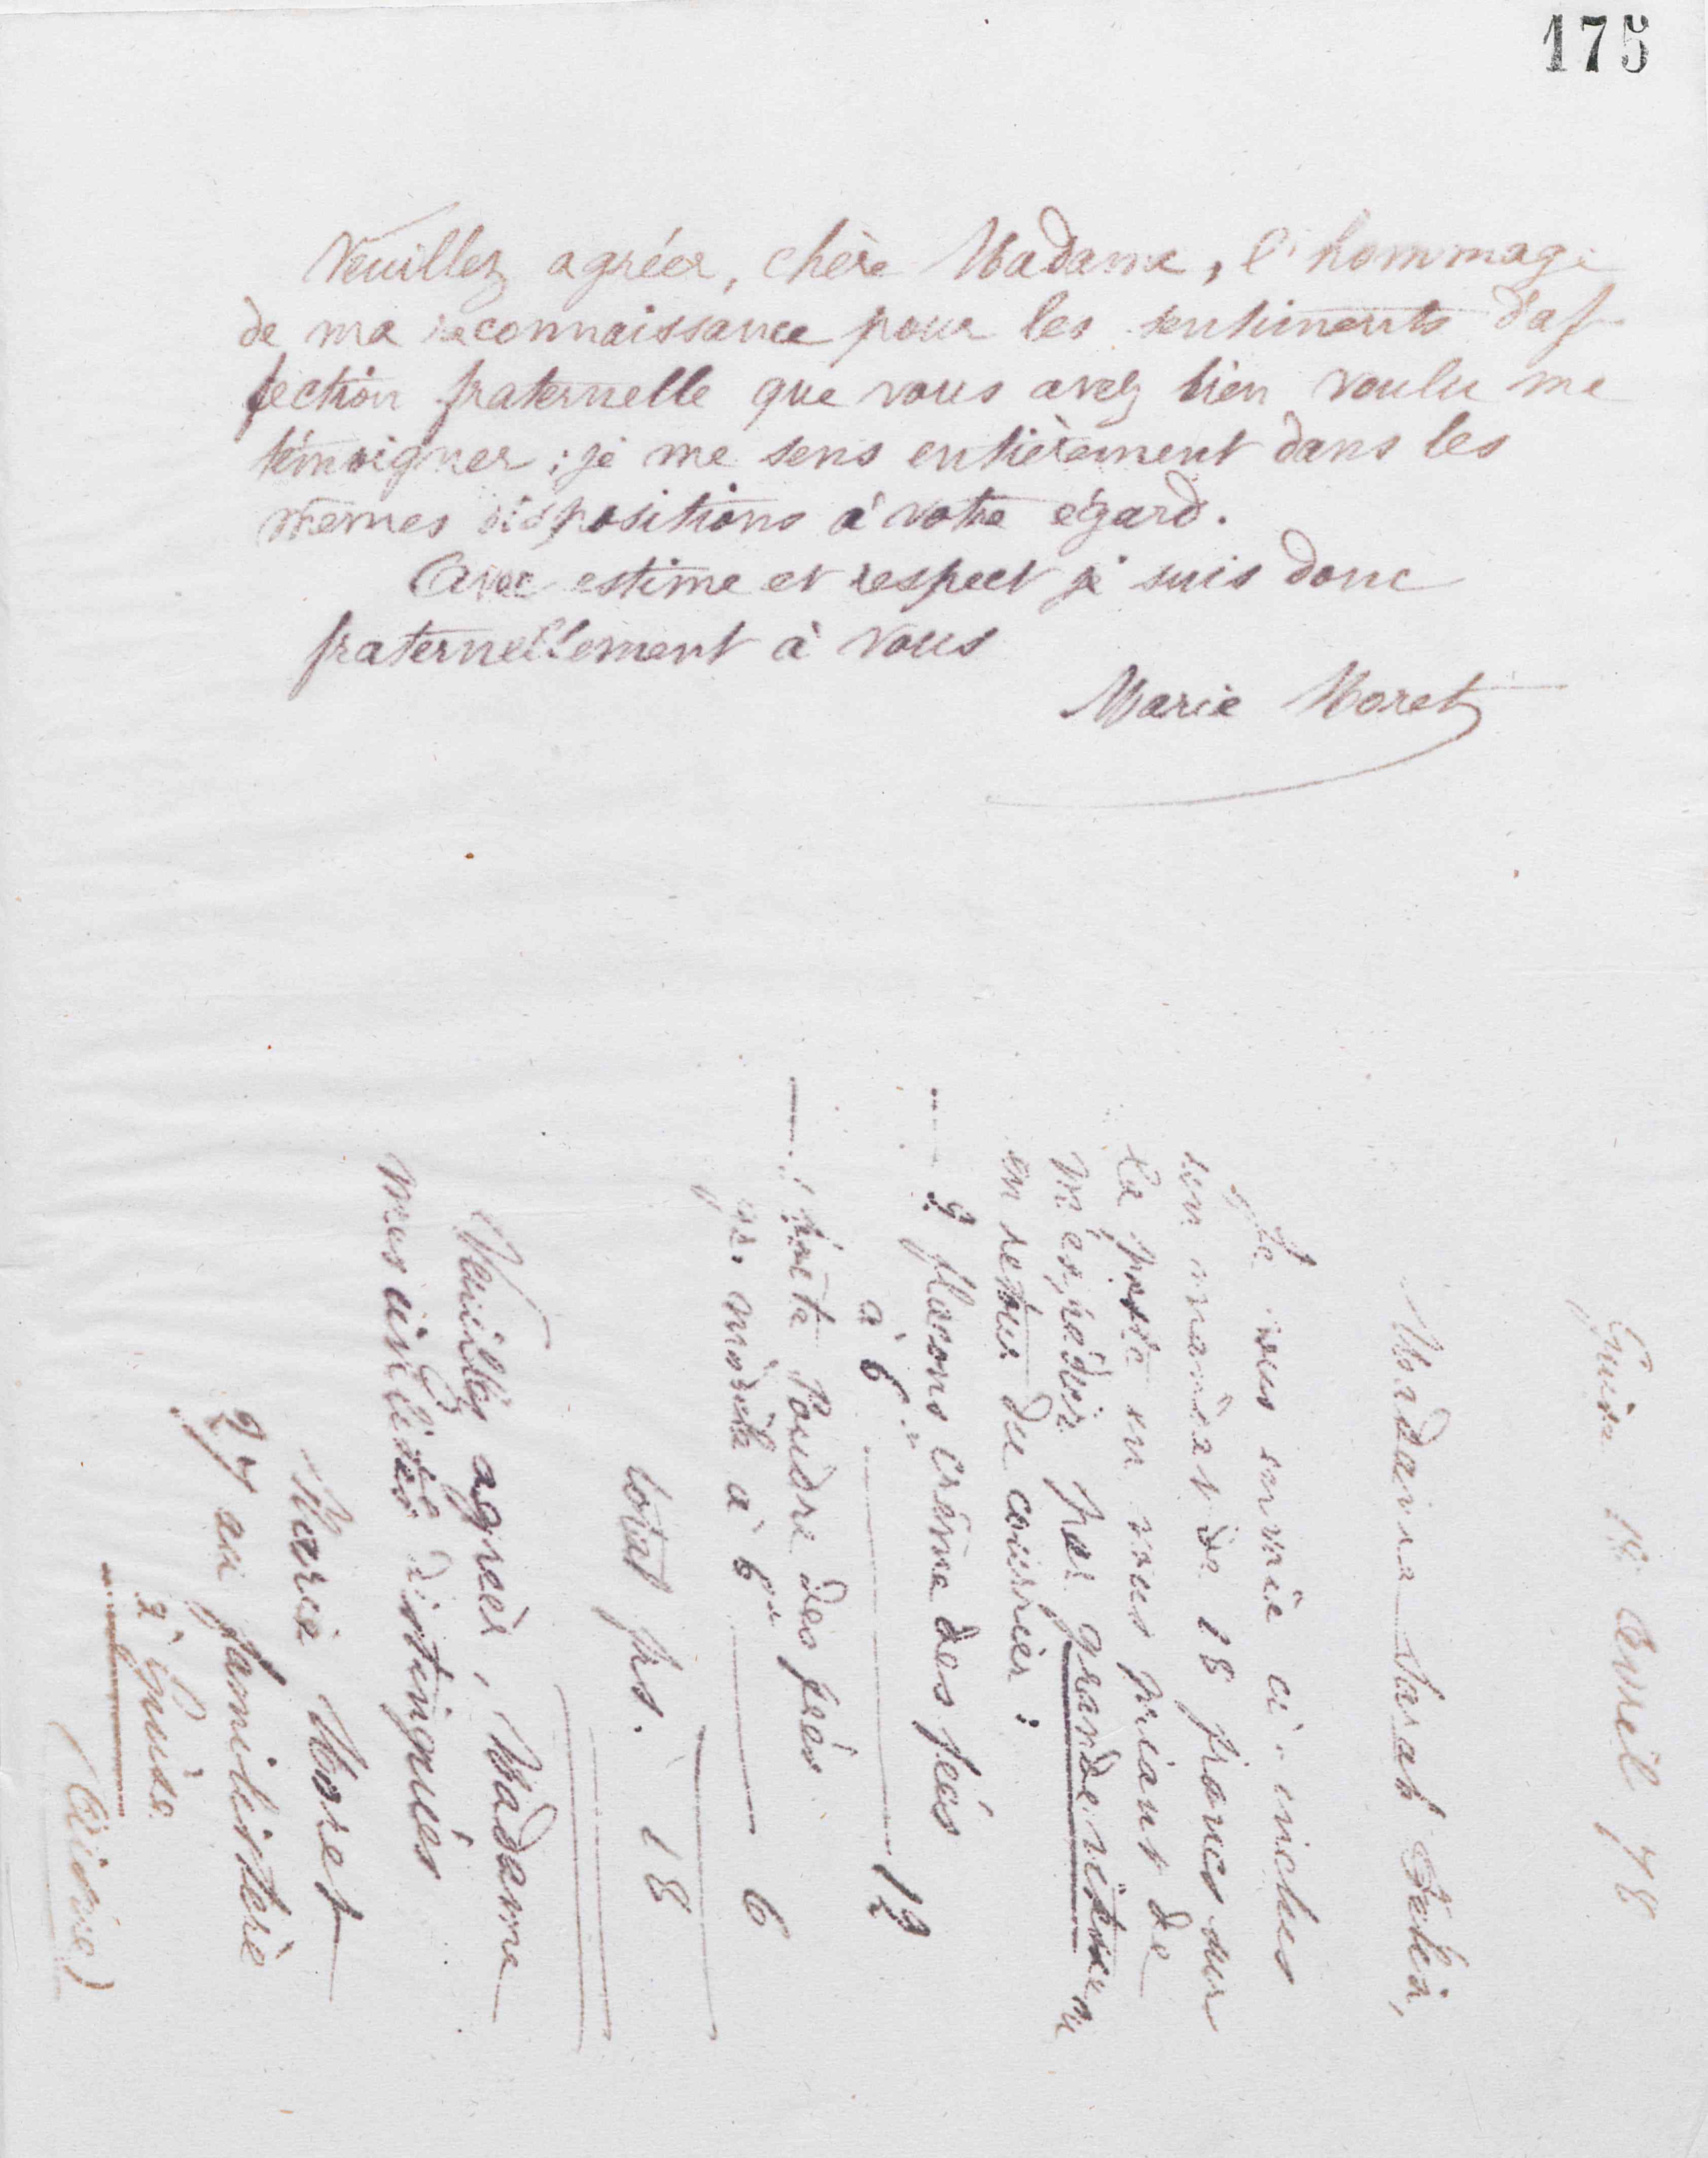 175
Veuillez agréer, chère Madame, l'hommage
de ma reconnaissance pour les sentiments d'af-
fection fraternelle que vous avez bien voulu me
témoigner ; je me sens entièrement dans les
mêmes dispositions à votre égard.
Avec estime et respect je suis donc
fraternellement à vous
Marie Moret
Guise Avril 78
Madame Sarah Félix,
Je vous envoie ci-inclus
un mandat de 18 francs sur
la poste en vous priant de
m'expédier par grande vitesse
en retour du courrier :
2 flacons crème des fées
à 6 " 12
1 boîte Poudre des fées
gr. modèle à 6 " 6
total frs. 18
Veuillez agréer, Madame
mes civilités distinguées
Marie Moret
27 au familistère
à Guise
(Aisne)